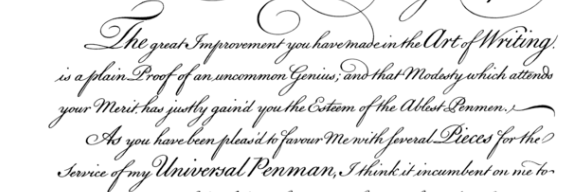 The great Improvement you have made in the Art of Writing,
is a plain Proof of an uncommon Genius; and that Modesty which attends
your Merit, has justly gain'd you the Esteem of the Ablest Penmen.
As you have been pleas'd to favour Me with several Pieces for the
Service of my Universal Penman, I think it incumbent on me to